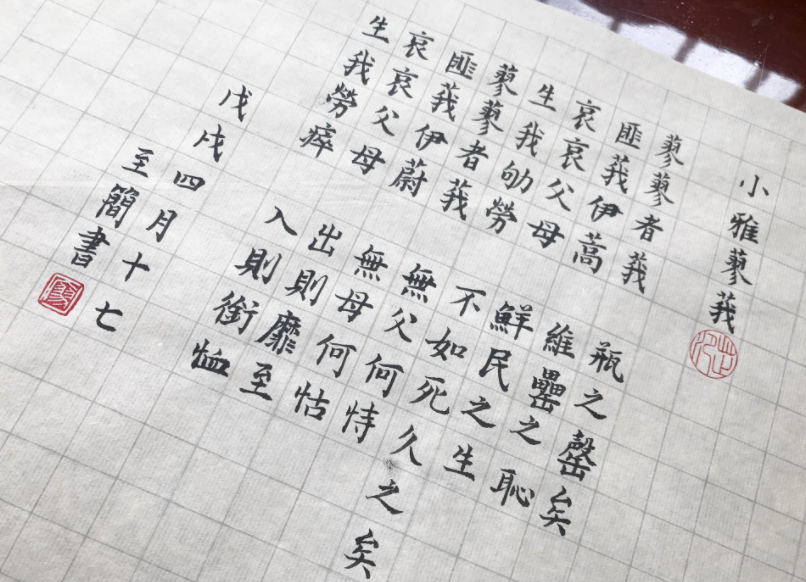 小雅蓼莪
蓼蓼者莪
匪莪伊蒿
哀哀父母
生我劬勞
蓼蓼者莪
匪莪伊蔚
哀哀父母
生我勞瘁
瓶之罄矣
維罍之恥
鮮民之生
不如死久之矣
無父何恃
無母何怙
出則靡至
入則銜恤
戊戌四月十七
至簡書